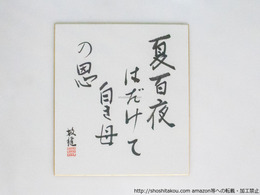 夏百夜
はだけて
白き母
の恩
敏雄
http://shoshitakou.com amazon等への転載・加工禁止